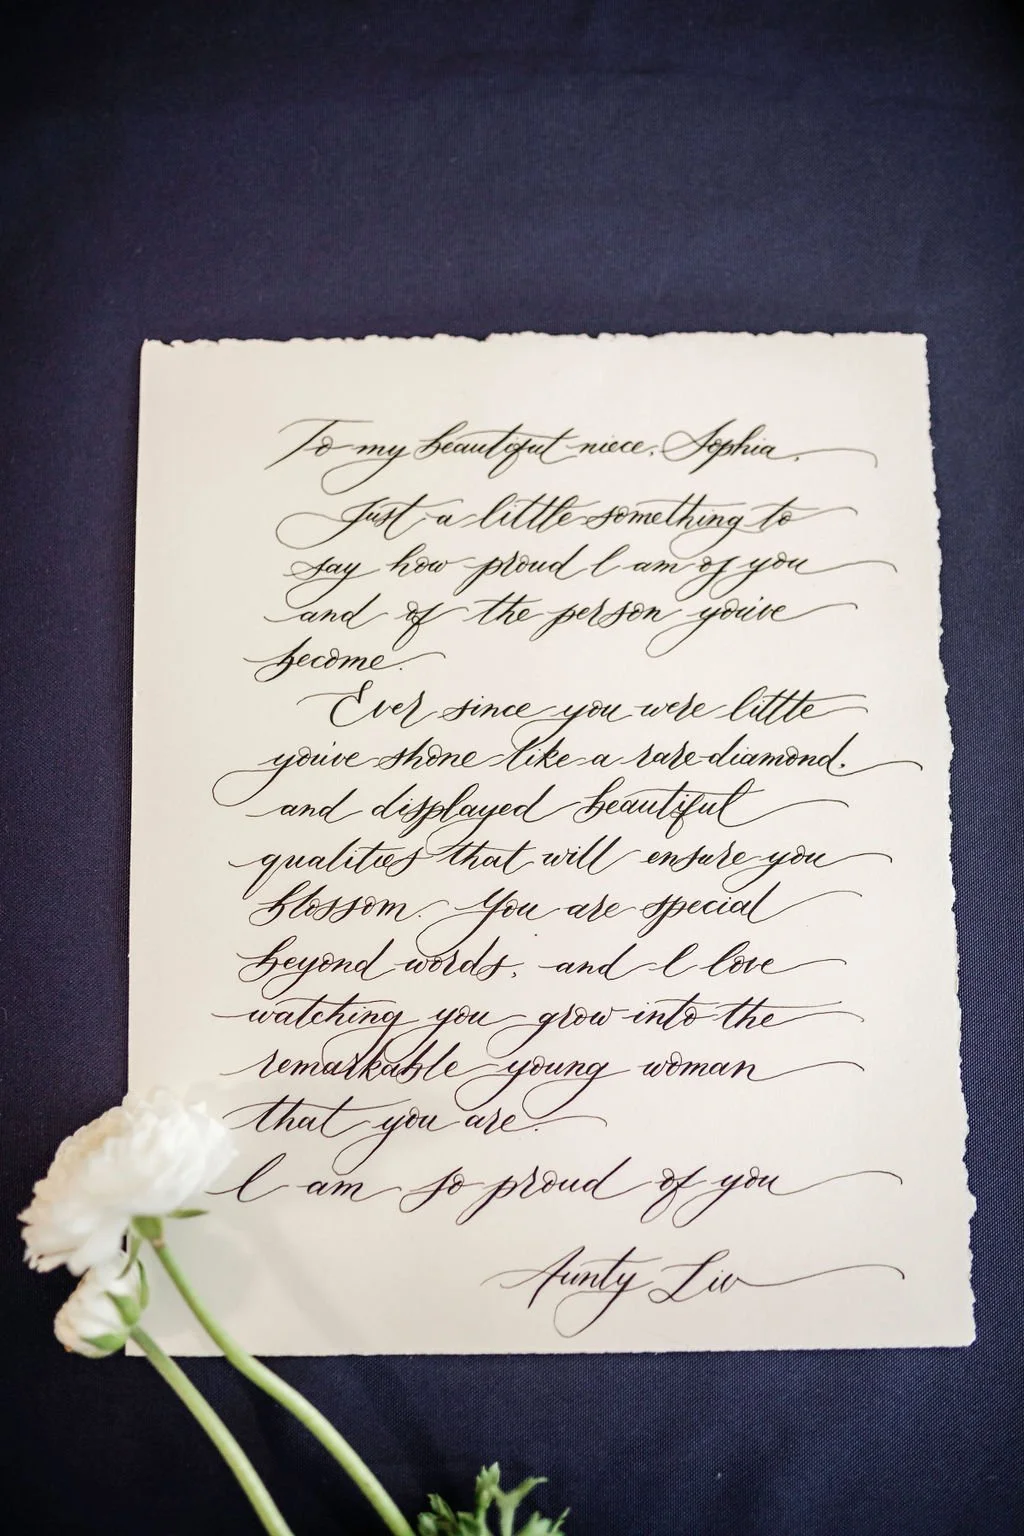 To my beautiful niece, Sophia,
Just a little something to
say how proud I am of you
and of the person you've
become.
Ever since you were little
you've shone like a rare diamond,
and displayed beautiful
qualities that will ensure you
blossom. You are special
beyond words, and I love
watching you grow into the
remarkable young woman
that you are.
I am so proud of you
Aunty Liv